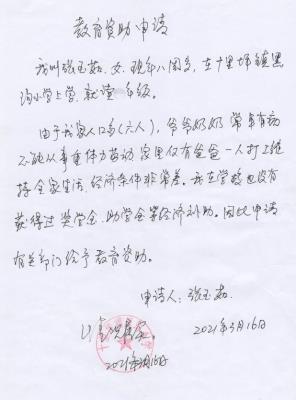 教育资助申请
我叫张玉茹，女，现年八周多，在十里坪镇黑
沟小学上学，就读一年级。
由于我家人口多(六人)，爷爷奶奶常年有病
不能从事重体力劳动，家里仅有爸爸一人打工维
持全家生活，经济条件非常差。我在学校也没有
获得过奖学金、助学金等经济补助。因此申请
有关部门给予教育资助。
申请人：张玉茹
2021年3月16日
情况属实。
2021年3月16日